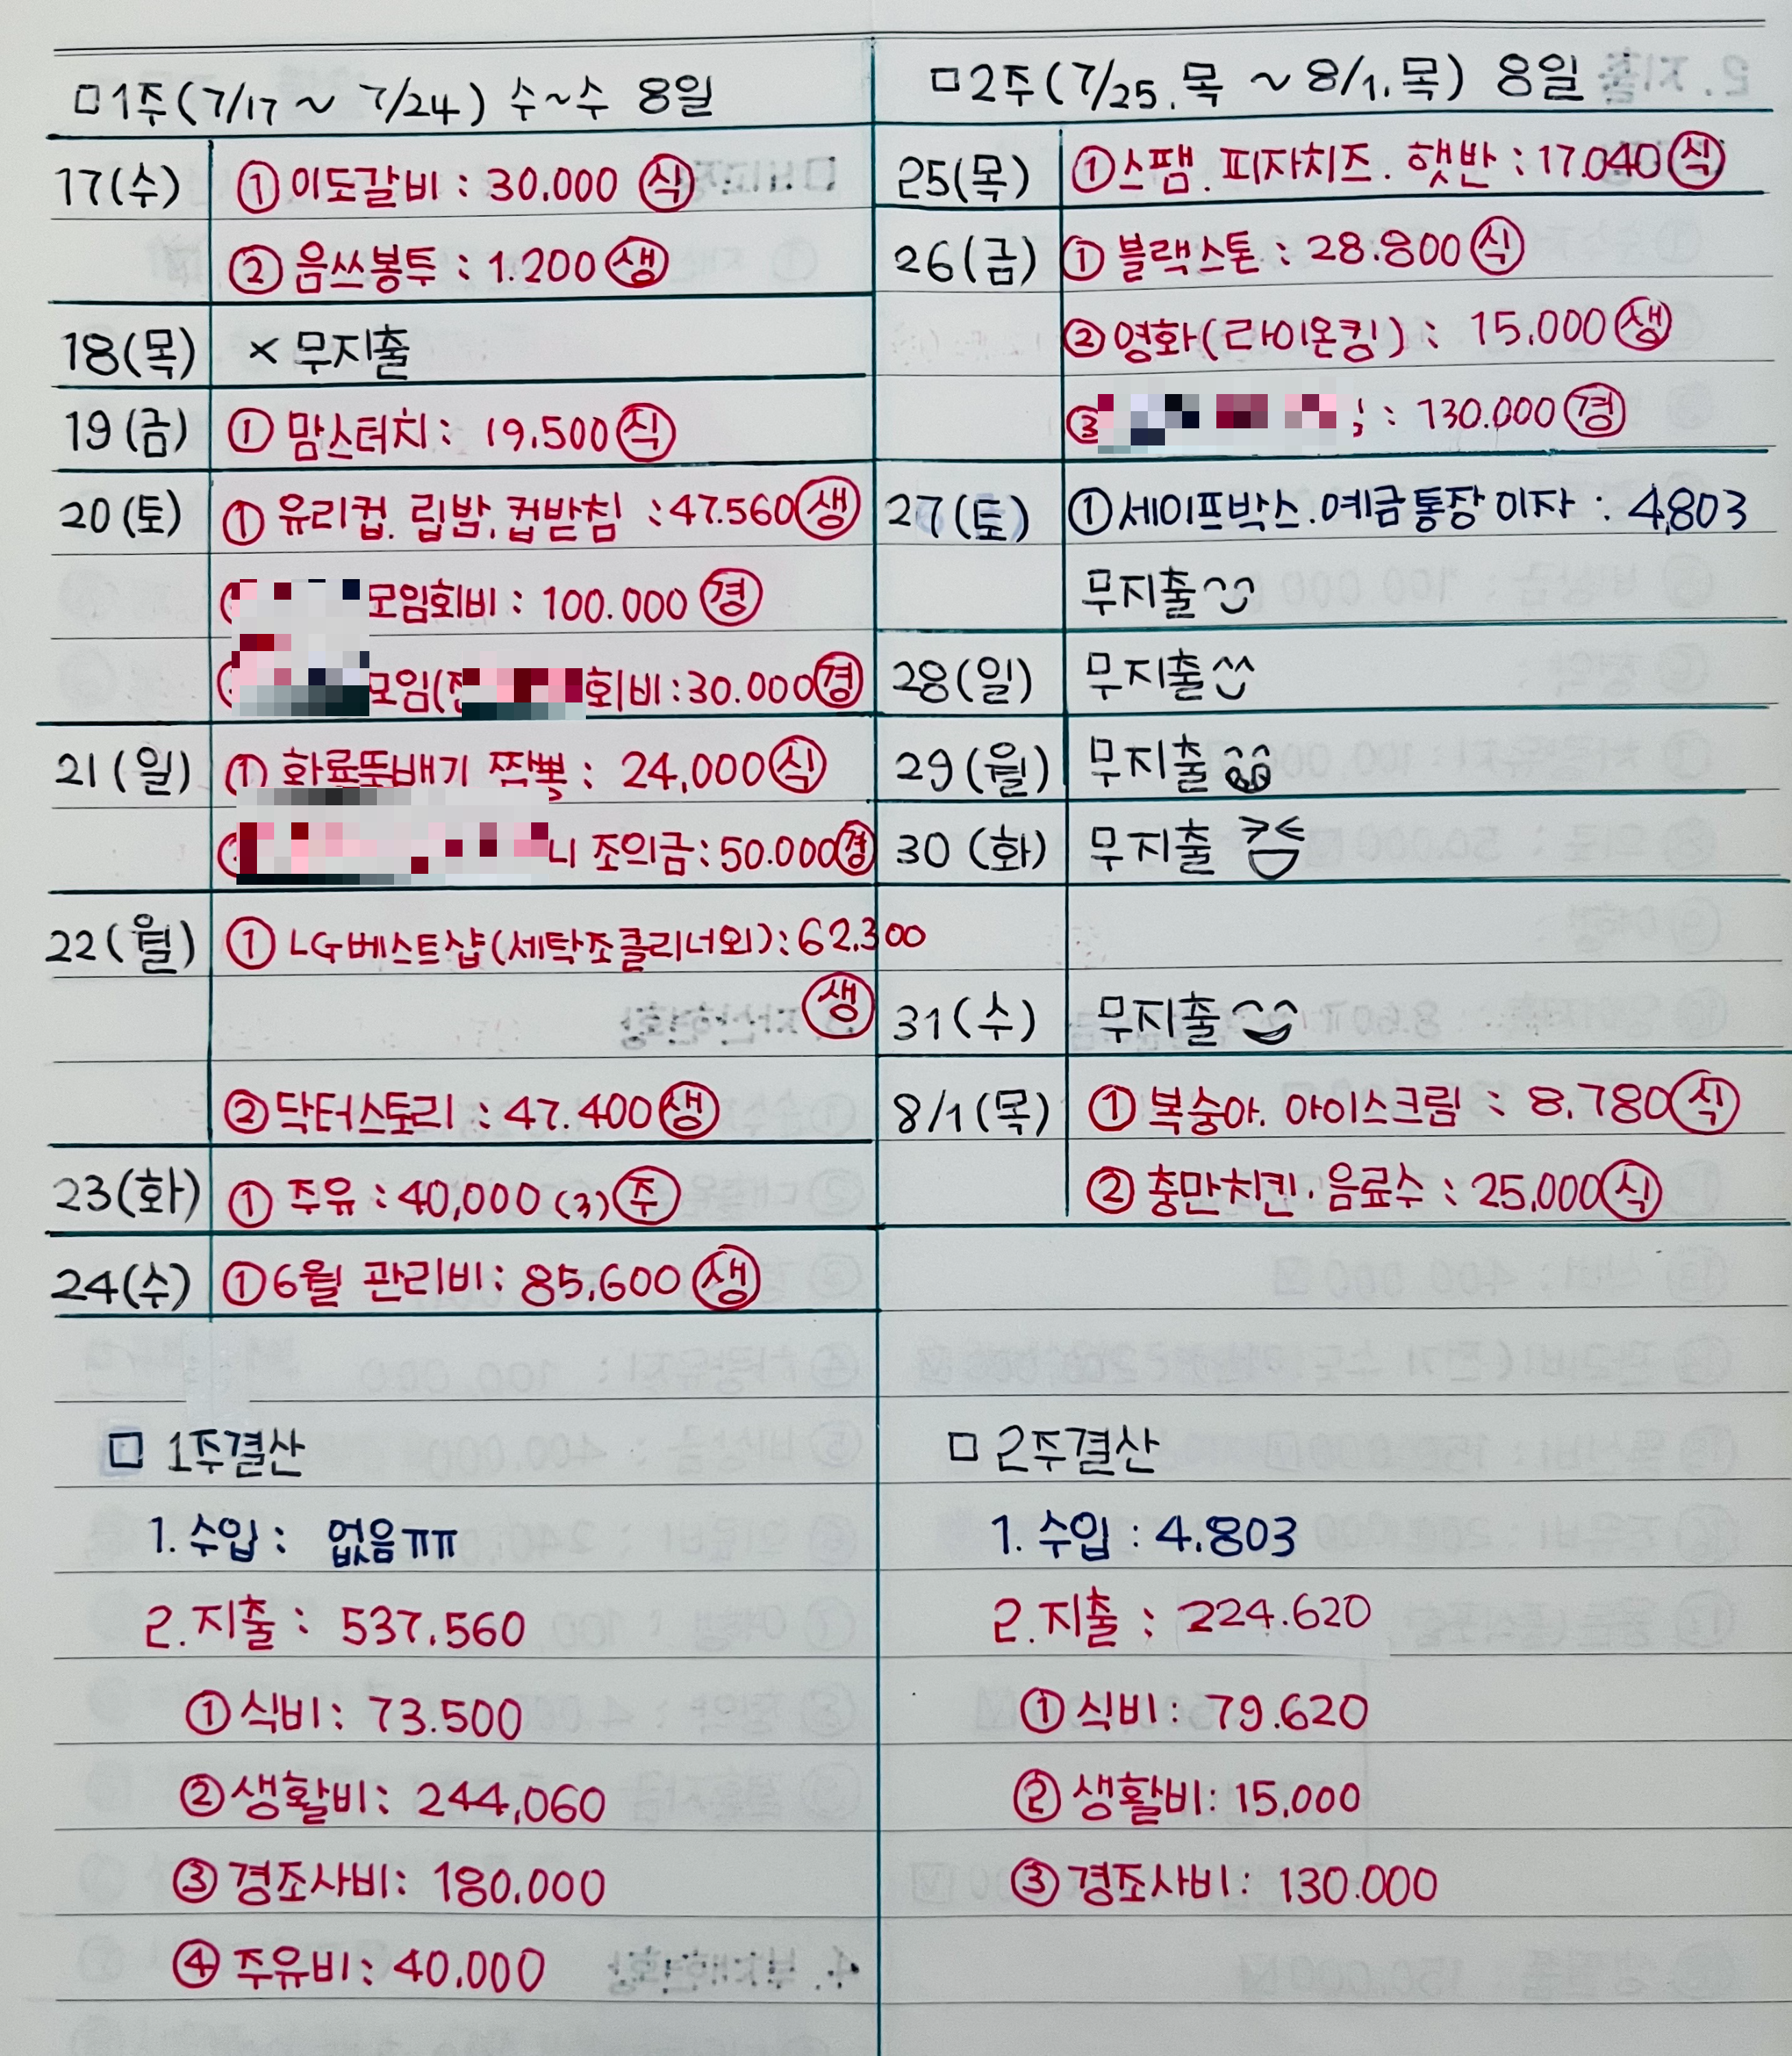 □1주(7/17 ~ 7/24) 수~수 8일
17(수) ①이도갈비 : 30.000 식
②음쓰봉투 : 1.200 생
18(목) × 무지출
19(금) ① 맘스터치 : 19.500 식
20(토) ① 유리컵. 립밤. 컵받침 : 47.560 생
모임회비 : 100.000 경
모임( 회비:30.000 경
21(일) ① 화룡뚝배기 짬뽕 : 24,000 식
니 조의금:50.000 경
22(월) ① LG베스트샵(세탁조클리너외):62.300
생
②닥터스토리 : 47.400 생
23(화) ① 주유 : 40,000 (3) 주
24(수) ①6월 관리비: 85,600 생
□ 1주결산
1. 수입 : 없음ㅠㅠ
2. 지출 : 537.560
①식비: 73.500
②생활비: 244,060
③경조사비: 180.000
④주유비: 40.000
□2주(7/25.목 ~ 8/1.목) 8일
25(목) ①스팸. 피자치즈. 햇반 : 17.040 식
26(금) ① 블랙스톤 : 28.800 식
②영화(라이온킹) : 15.000 생
③ : 130.000 경
27(토) ①세이프박스.예금통장 이자 : 4,803
무지출
28(일) 무지출
29(월) 무지출
30(화) 무지출
31(수) 무지출
8/1(목) ① 복숭아. 아이스크림 : 8.780 식
② 충만치킨. 음료수 : 25,000 식
□ 2주결산
1. 수입 : 4.803
2. 지출 : 224.620
①식비: 79.620
②생활비: 15.000
③경조사비: 130.000